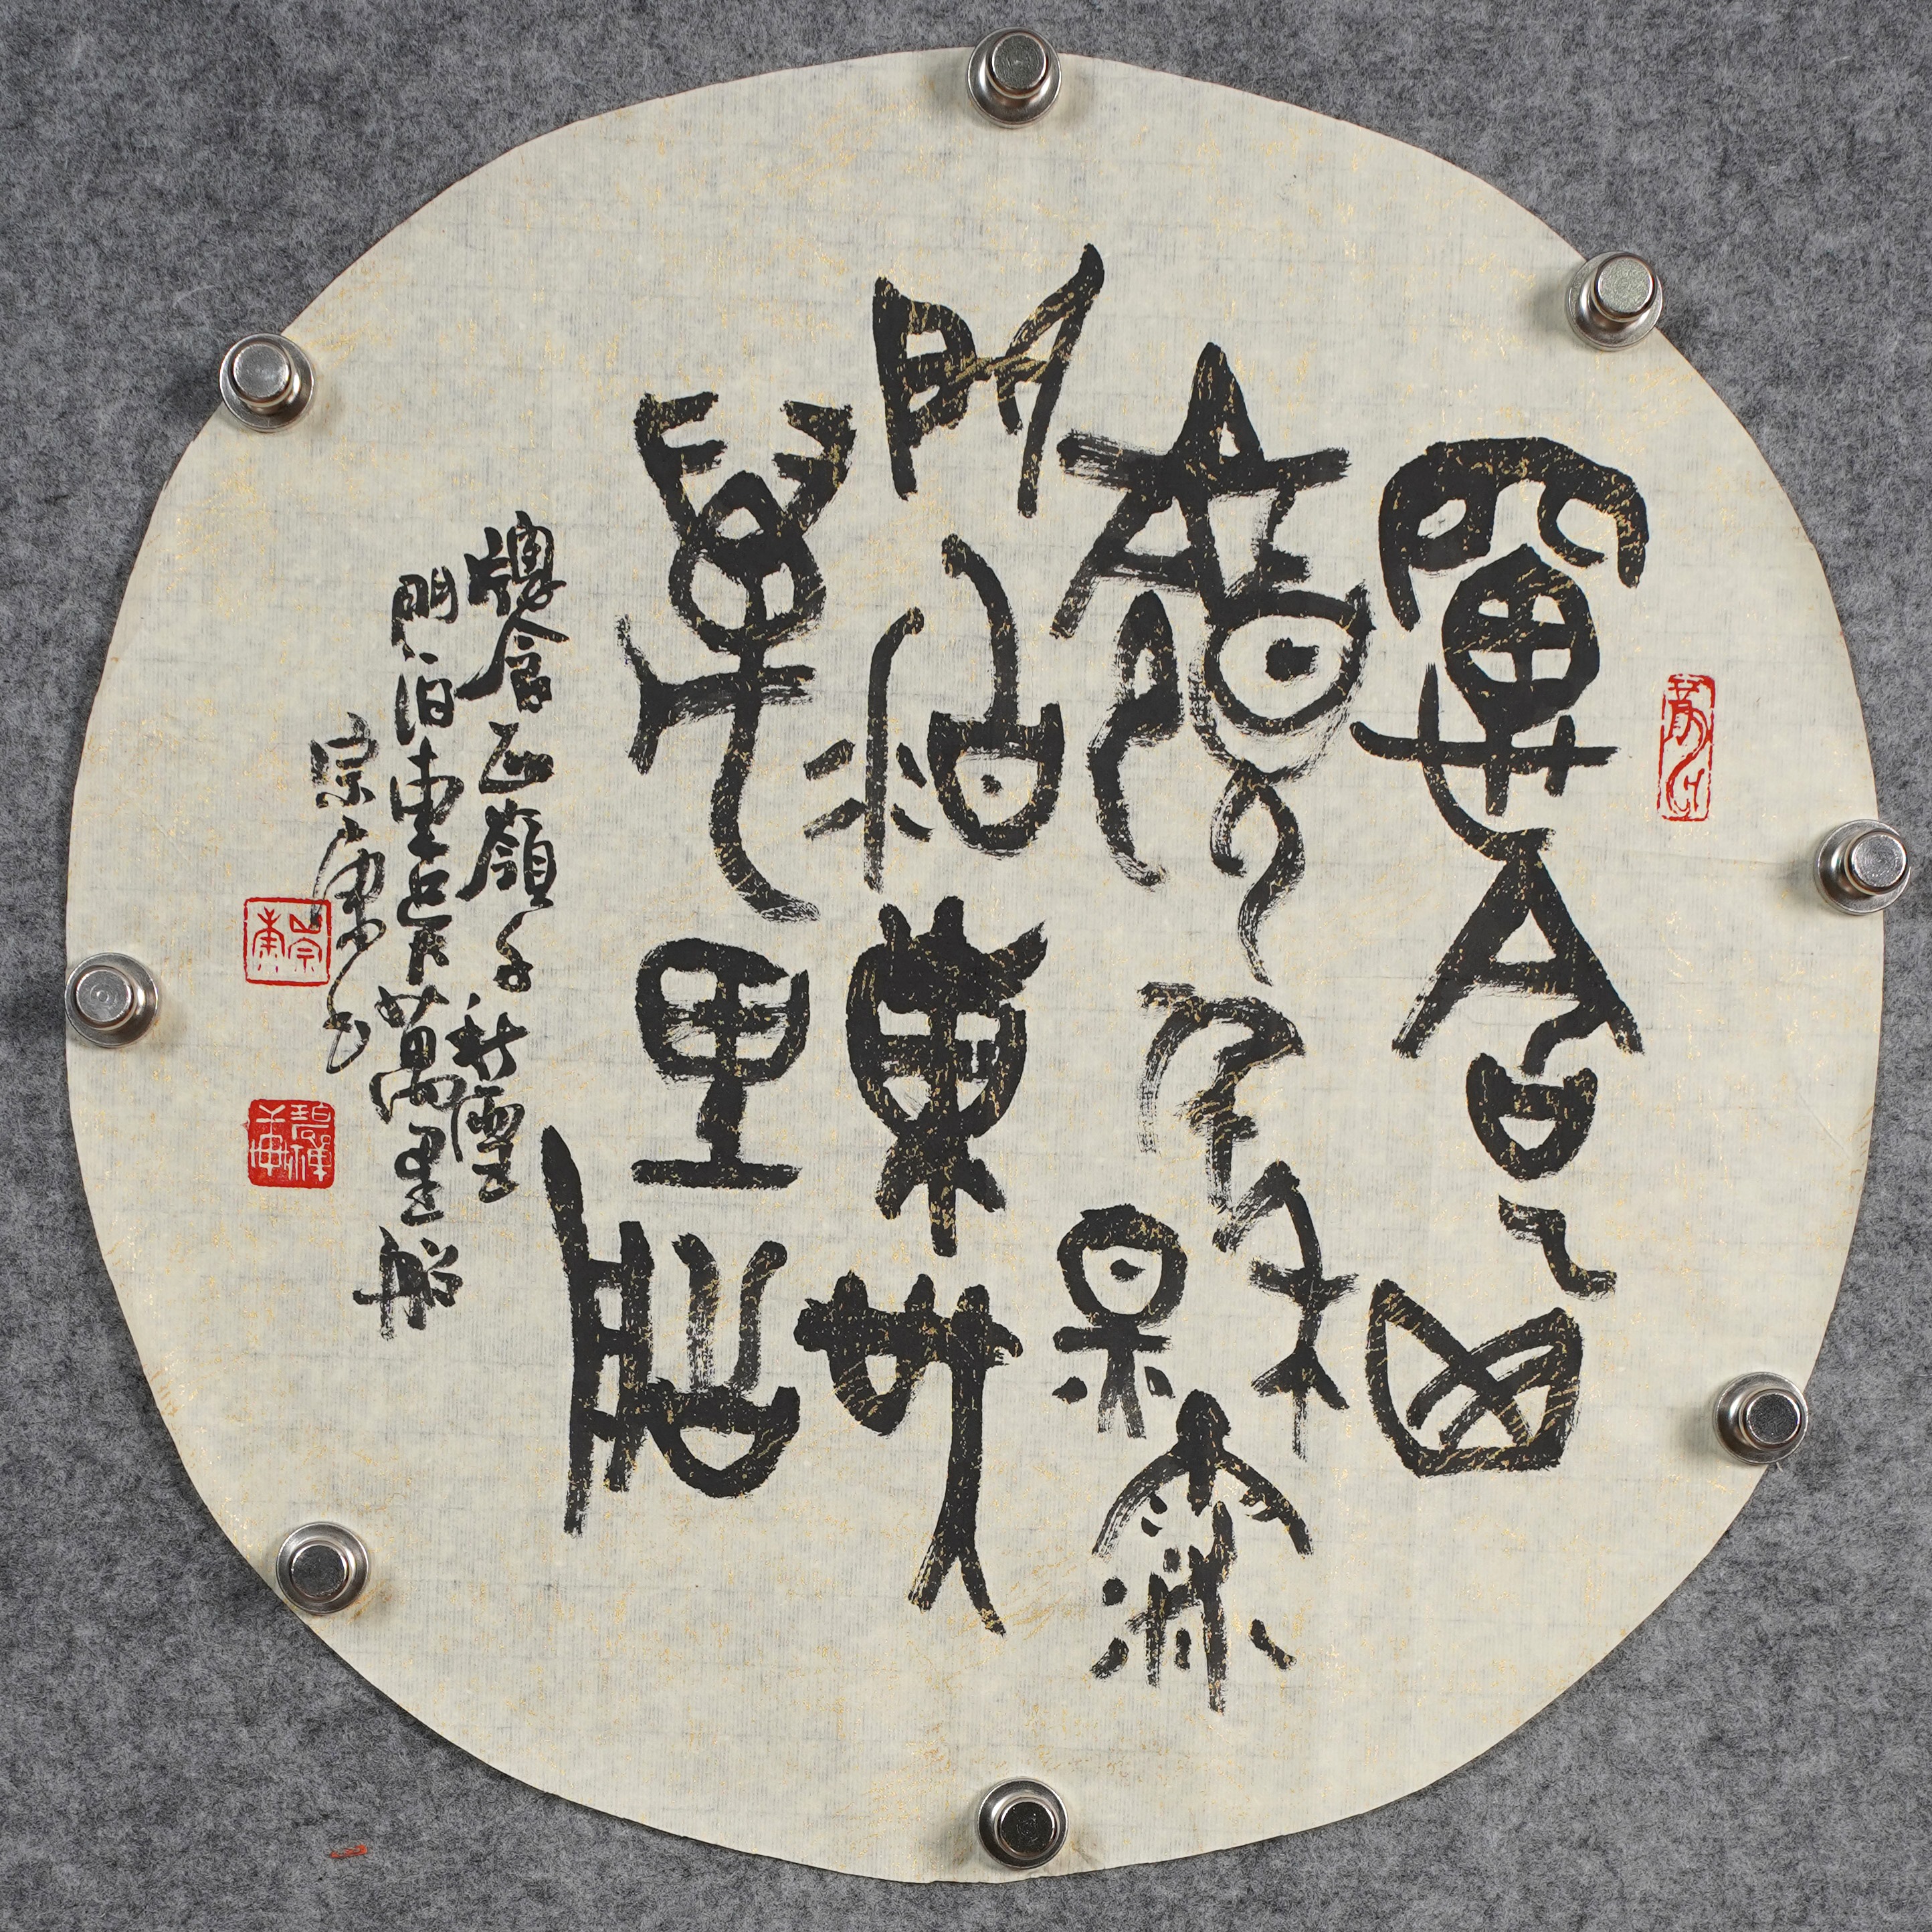 窗含西
嶺千秋雪
門泊東吳
萬里船
牕含西嶺千秋雪
門泊東吳萬里船
宗康书
宗康